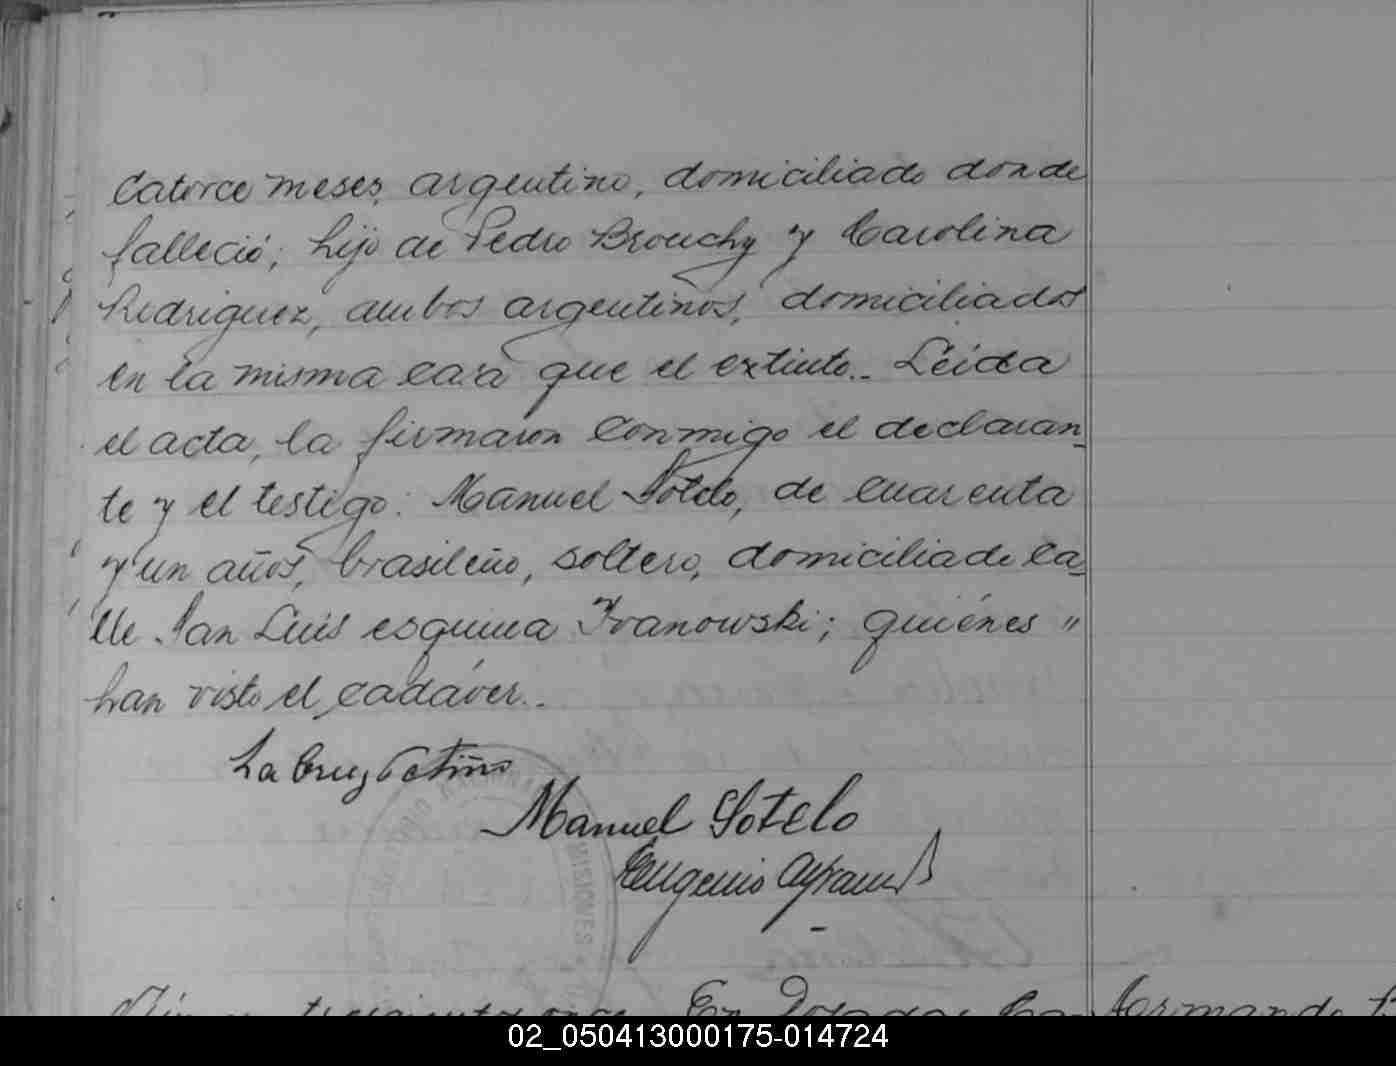 Catorce meses, argentino, domiciliado donde
falleció; hijo de Pedro Brouchy y Carolina
Rodriguez, ambos argentinos, domiciliados
en la misma casa que el extinto.- Léida
el acta, la firmaron conmigo el declaran-
te y el testigo: Manuel Sotelo, de cuarenta
y un años, brasileño, soltero, domiciliado ca-
lle San Luis esquina Ivanowski; quiénes "
han visto el cadáver.-
La Cruz
Manuel Sotelo
Eugenio
MISIONES
En Posadas, Ca- Armando
02_050413000175-014724